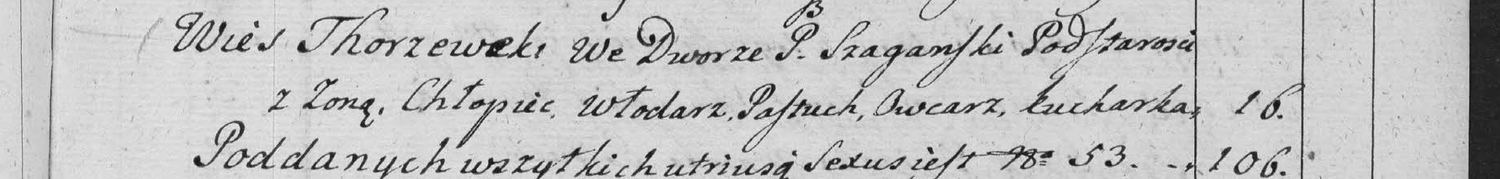 Wieś Thorzewski We Dworze P. Szaganski Podstarosci
z Zoną, Chłopiec, Włodarz, Pastuch, Owcarz, kucharka, 16.
Poddanych wszytkich utriusq Sexus iest No 53. 106.